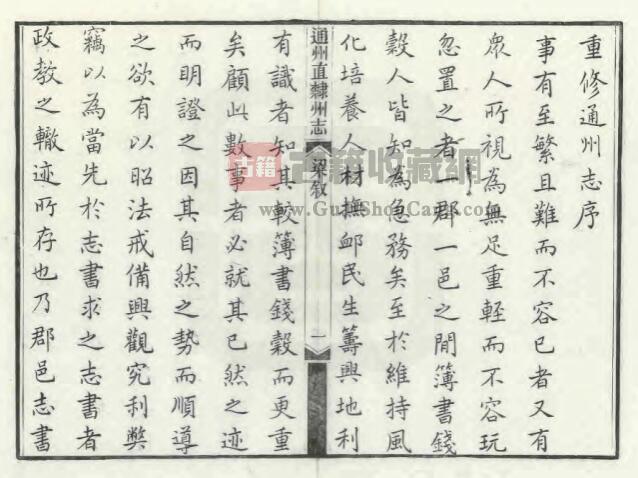 重修通州志序
事有至繁且難而不容已者又有
眾人所視為無足重輕而不容玩
忽置之者一郡一邑之間簿書錢
穀人皆知為急務矣至於維持風
化培養人材撫邺民生籌興地利
通州直隸州志
梁敘
一
有識者知其較簿書錢穀而更重
矣顧此數事者必就其已然之迹
而明證之因其自然之勢而順導
之欲有以昭法戒備興觀究利獘
竊以為當先於志書求之志書者
政教之轍迹所存也乃郡邑志書
古籍
古籍收藏網